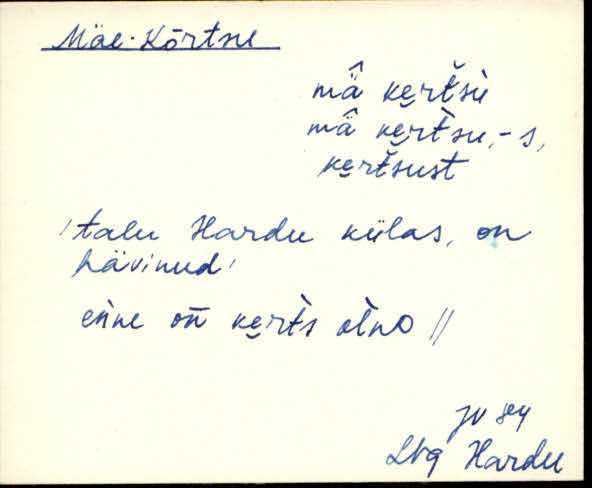 Mäe-Kõrtsu
mä̂ ke̮rt̆sù
mä̂ ke̮rt̀su, -s,
ke̮rt̆sust
'talu Hardu külas, on
hävinud'
eǹne oǹ ke̮rt̀s olǹo //
JV 84
Lvg Hardu